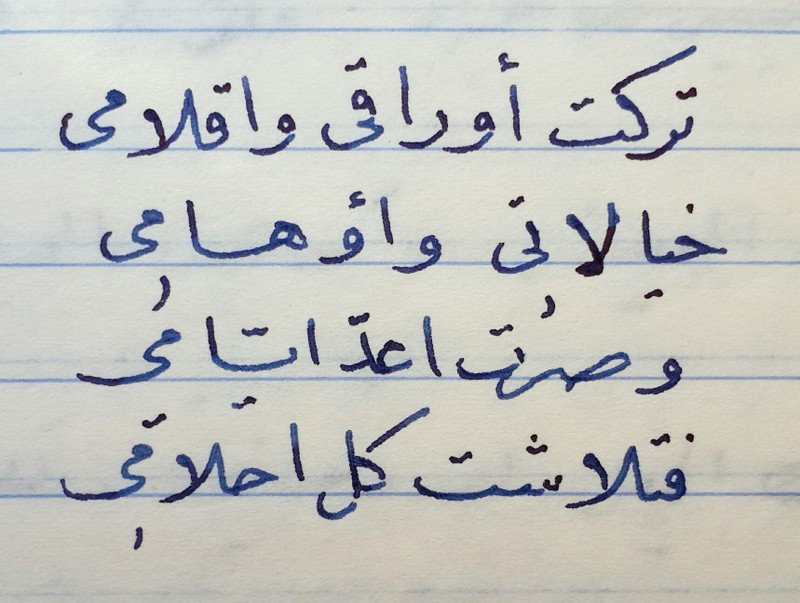 تركت أوراقى واقلامى
خيالاتى وأوهامى
وصرُت اعدّ اتيامىُ
فتلاشت كل احلامى